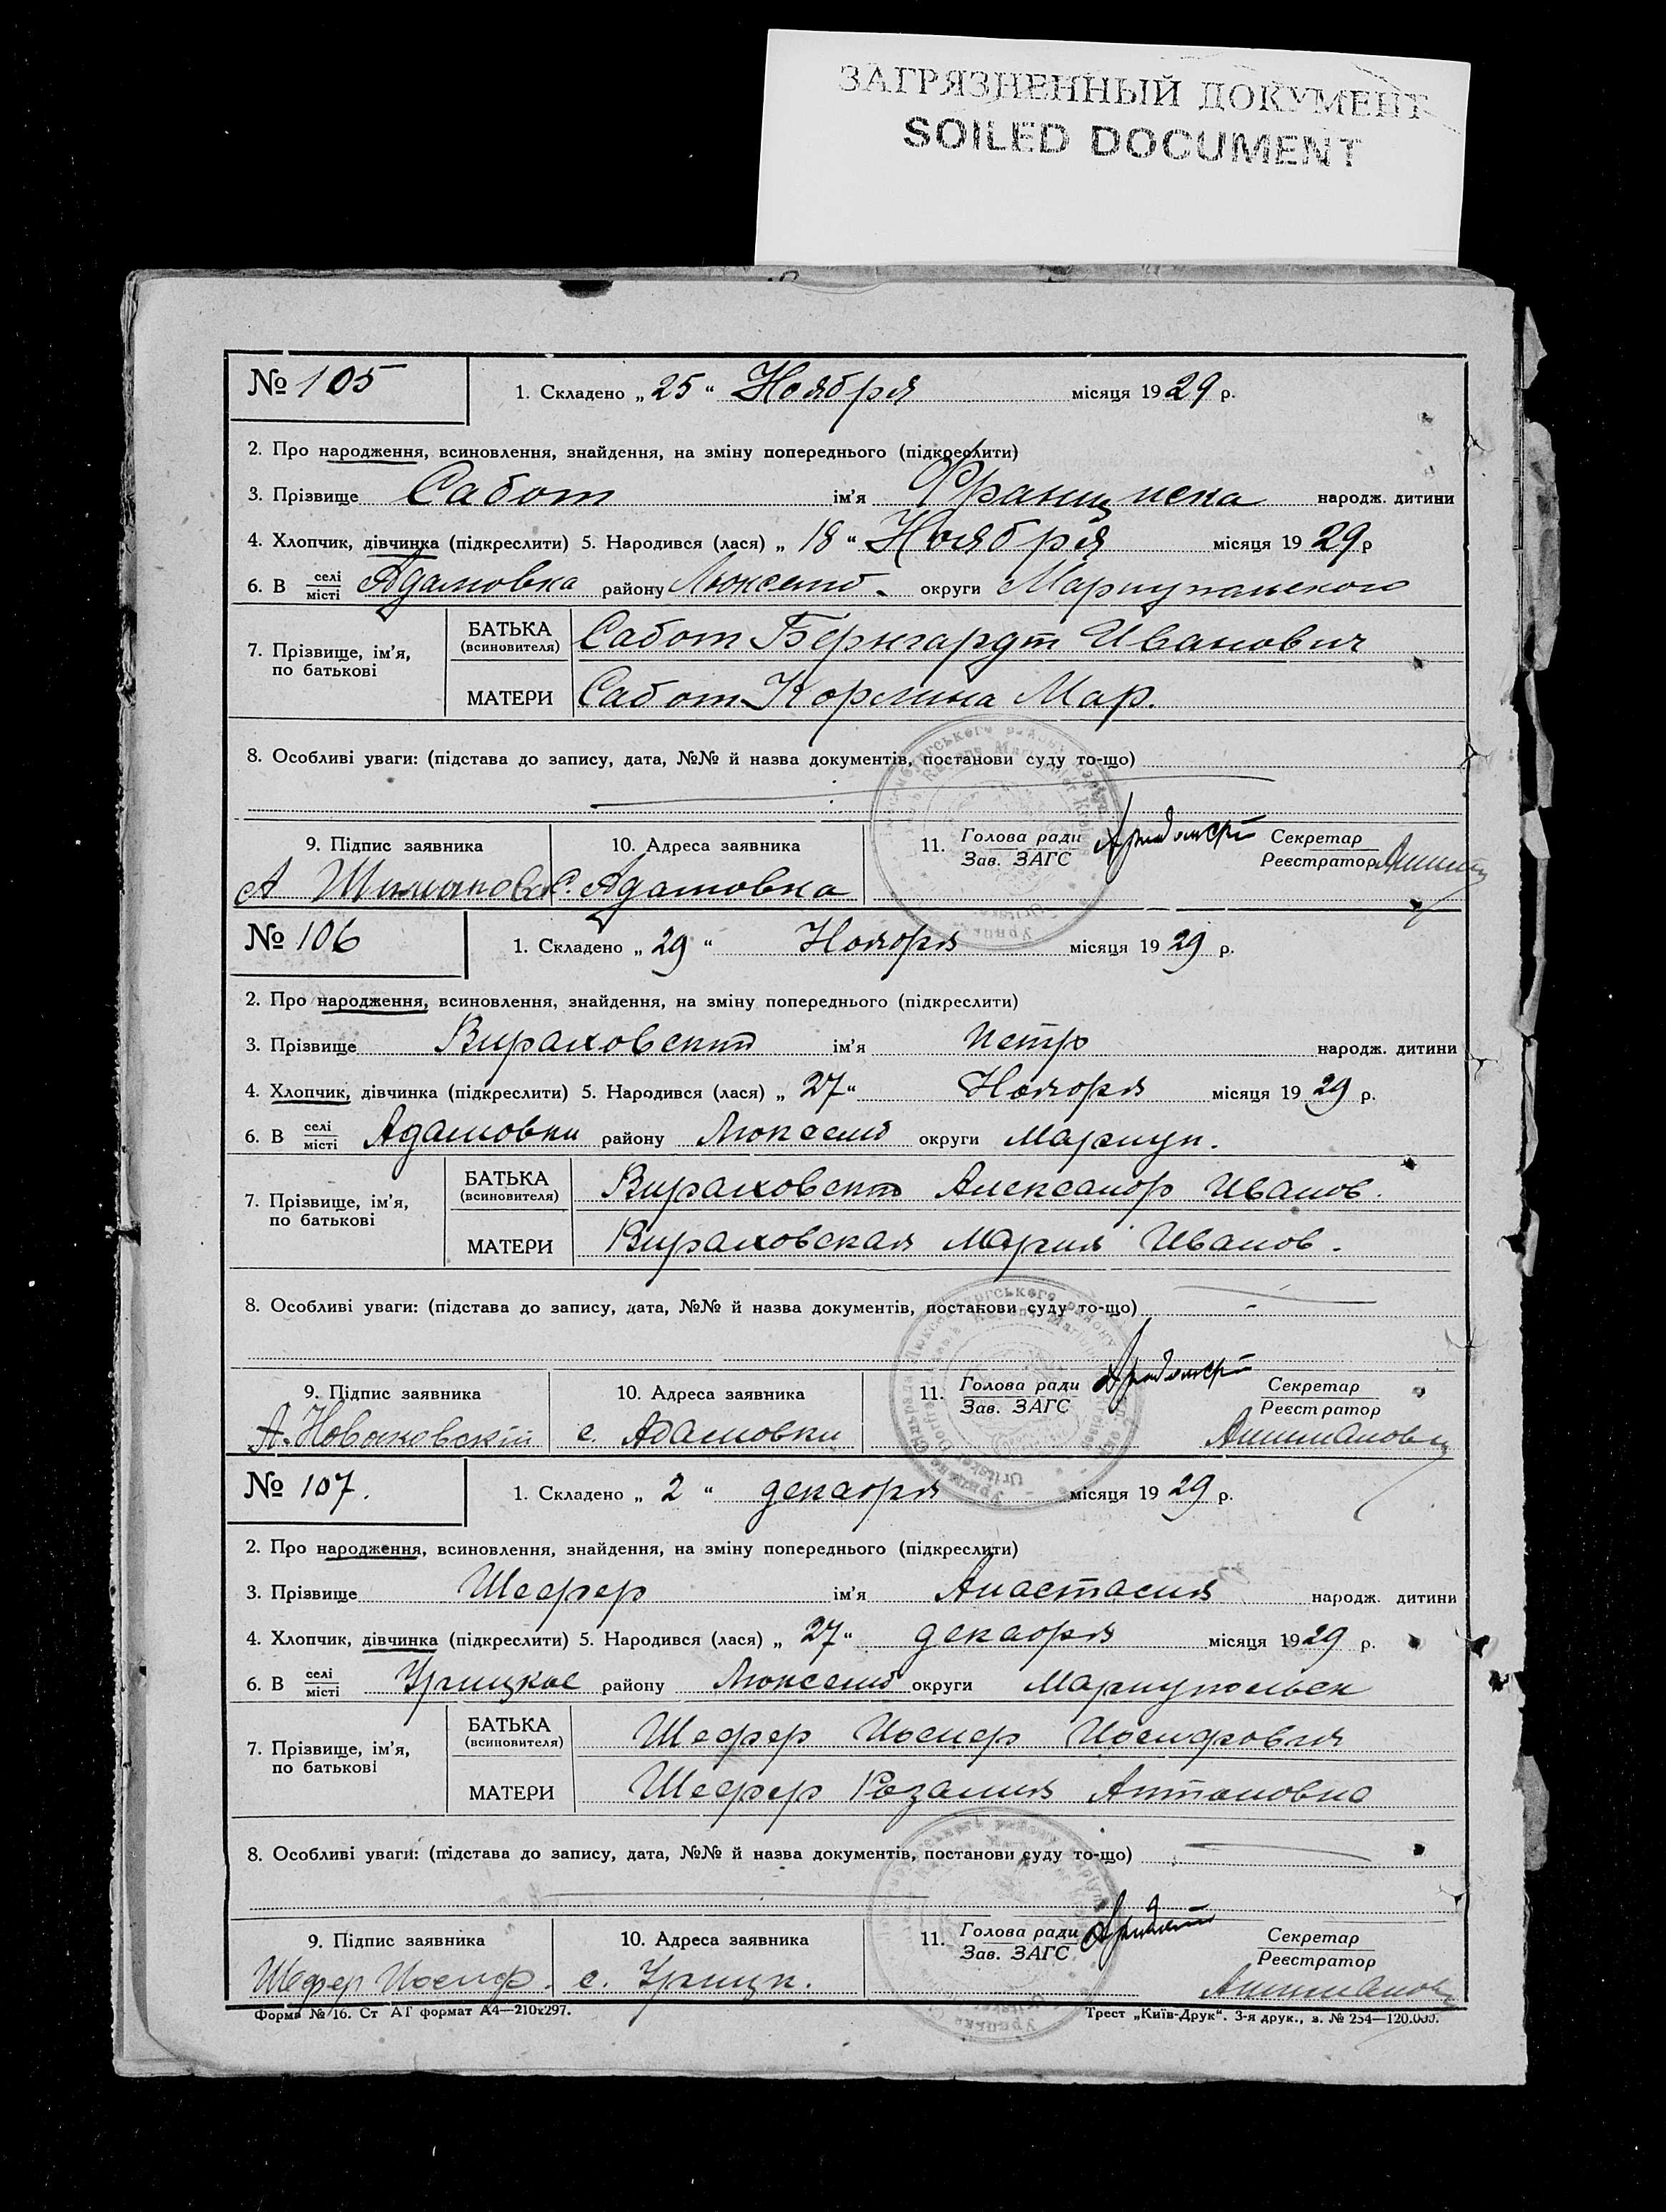 ЗАГРЯЗНЕННЫЙ ДОКУМЕНТ
SOILED DOCUMENT
№ 105
1. Складено „ 25 “ Ноября місяця 1929 р.
2. Про народження, всиновлення, знайдення, на зміну попереднього (підкреслити)
3. Прізвище Сабот ім’я Франциска народж. дитини
4. Хлопчик, дівчинка (підкреслити) 5. Народився (лася) „ 18 “ Ноября місяця 1929 р
6. В селі/місті Адамовка району Люксемб. округи Мариупольского
7. Прізвище, ім’я, по батькові
БАТЬКА (всиновителя) Сабот Бернгардт Иванович
МАТЕРИ Сабот Мар.
8. Особливі уваги: (підстава до запису, дата, №№ й назва документів, постанови суду то-що)
9. Підпис заявника 10. Адреса заявника 11. Голова ради Секретар
Зав. ЗАГС Реєстратор
А с. Адамовка
№ 106
1. Складено „ 29 “ Ноября місяця 1929 р.
2. Про народження, всиновлення, знайдення, на зміну попереднього (підкреслити)
3. Прізвище ім’я Петр народж. дитини
4. Хлопчик, дівчинка (підкреслити) 5. Народився (лася) „ 27 “ Ноября місяця 1929 р.
6. В селі/місті Адамовки району Люксемб округи Мариуп.
7. Прізвище, ім’я, по батькові
БАТЬКА (всиновителя) Александр Иванов.
МАТЕРИ Мария Иванов.
8. Особливі уваги: (підстава до запису, дата, №№ й назва документів, постанови суду то-що)
9. Підпис заявника 10. Адреса заявника 11. Голова ради Секретар
Зав. ЗАГС Реєстратор
с. Адамовки
№ 107.
1. Складено „ 2 “ декабря місяця 1929 р.
2. Про народження, всиновлення, знайдення, на зміну попереднього (підкреслити)
3. Прізвище Шефер ім’я Анастасия народж. дитини
4. Хлопчик, дівчинка (підкреслити) 5. Народився (лася) „ 27 “ декабря місяця 1929 р.
6. В селі/місті Урицкое району Люксемб округи Мариупольск
7. Прізвище, ім’я, по батькові
БАТЬКА (всиновителя) Шефер Иосиф Иосифович
МАТЕРИ Шефер Розалия Антоновна
8. Особливі уваги: (підстава до запису, дата, №№ й назва документів, постанови суду то-що)
9. Підпис заявника 10. Адреса заявника 11. Голова ради Секретар
Зав. ЗАГС Реєстратор
Шефер Иосиф. с. Урицк.
Форма № 16. Ст АГ формат А4—210х297. Трест „Київ-Друк“. 3-я друк., з. № 254—120.000.